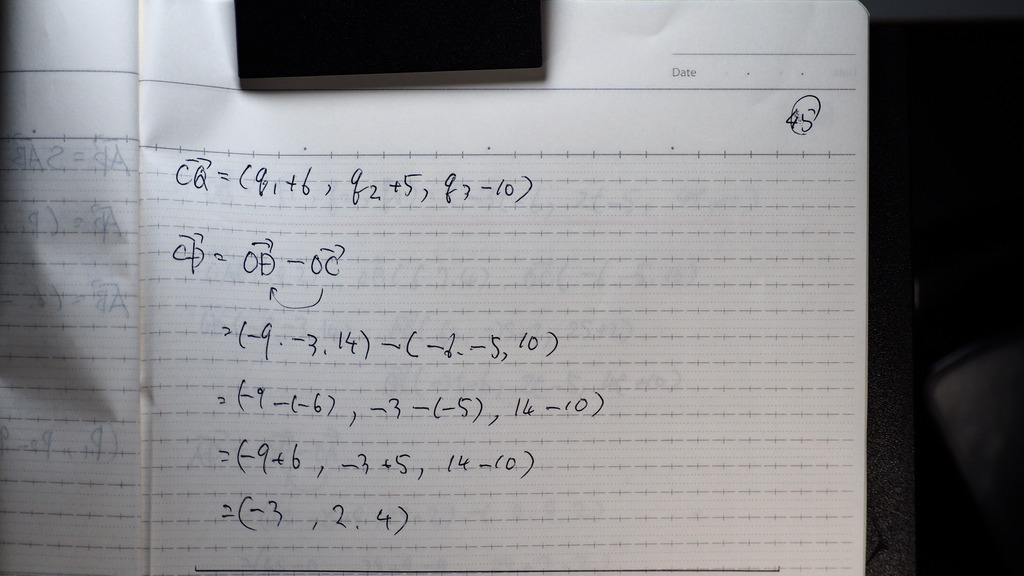 Date
45
CQ→ = (q₁+6, q₂+5, q₃-10)
CD→ = OD→ - OC→
= (-9. -3. 14) - (-6. -5, 10)
= (-9-(-6), -3-(-5), 14-10)
= (-9+6, -3+5, 14-10)
= (-3, 2. 4)